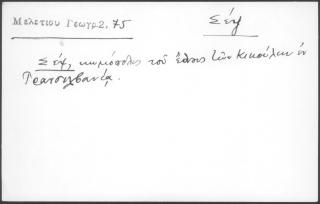 Μελετίου Γεωγρ2. 75
Σέψ
Σέψ, κωμόπολις τοῦ ἔθνους τῶν Κικούλων ἐν
Τρανσυλβανίᾳ.